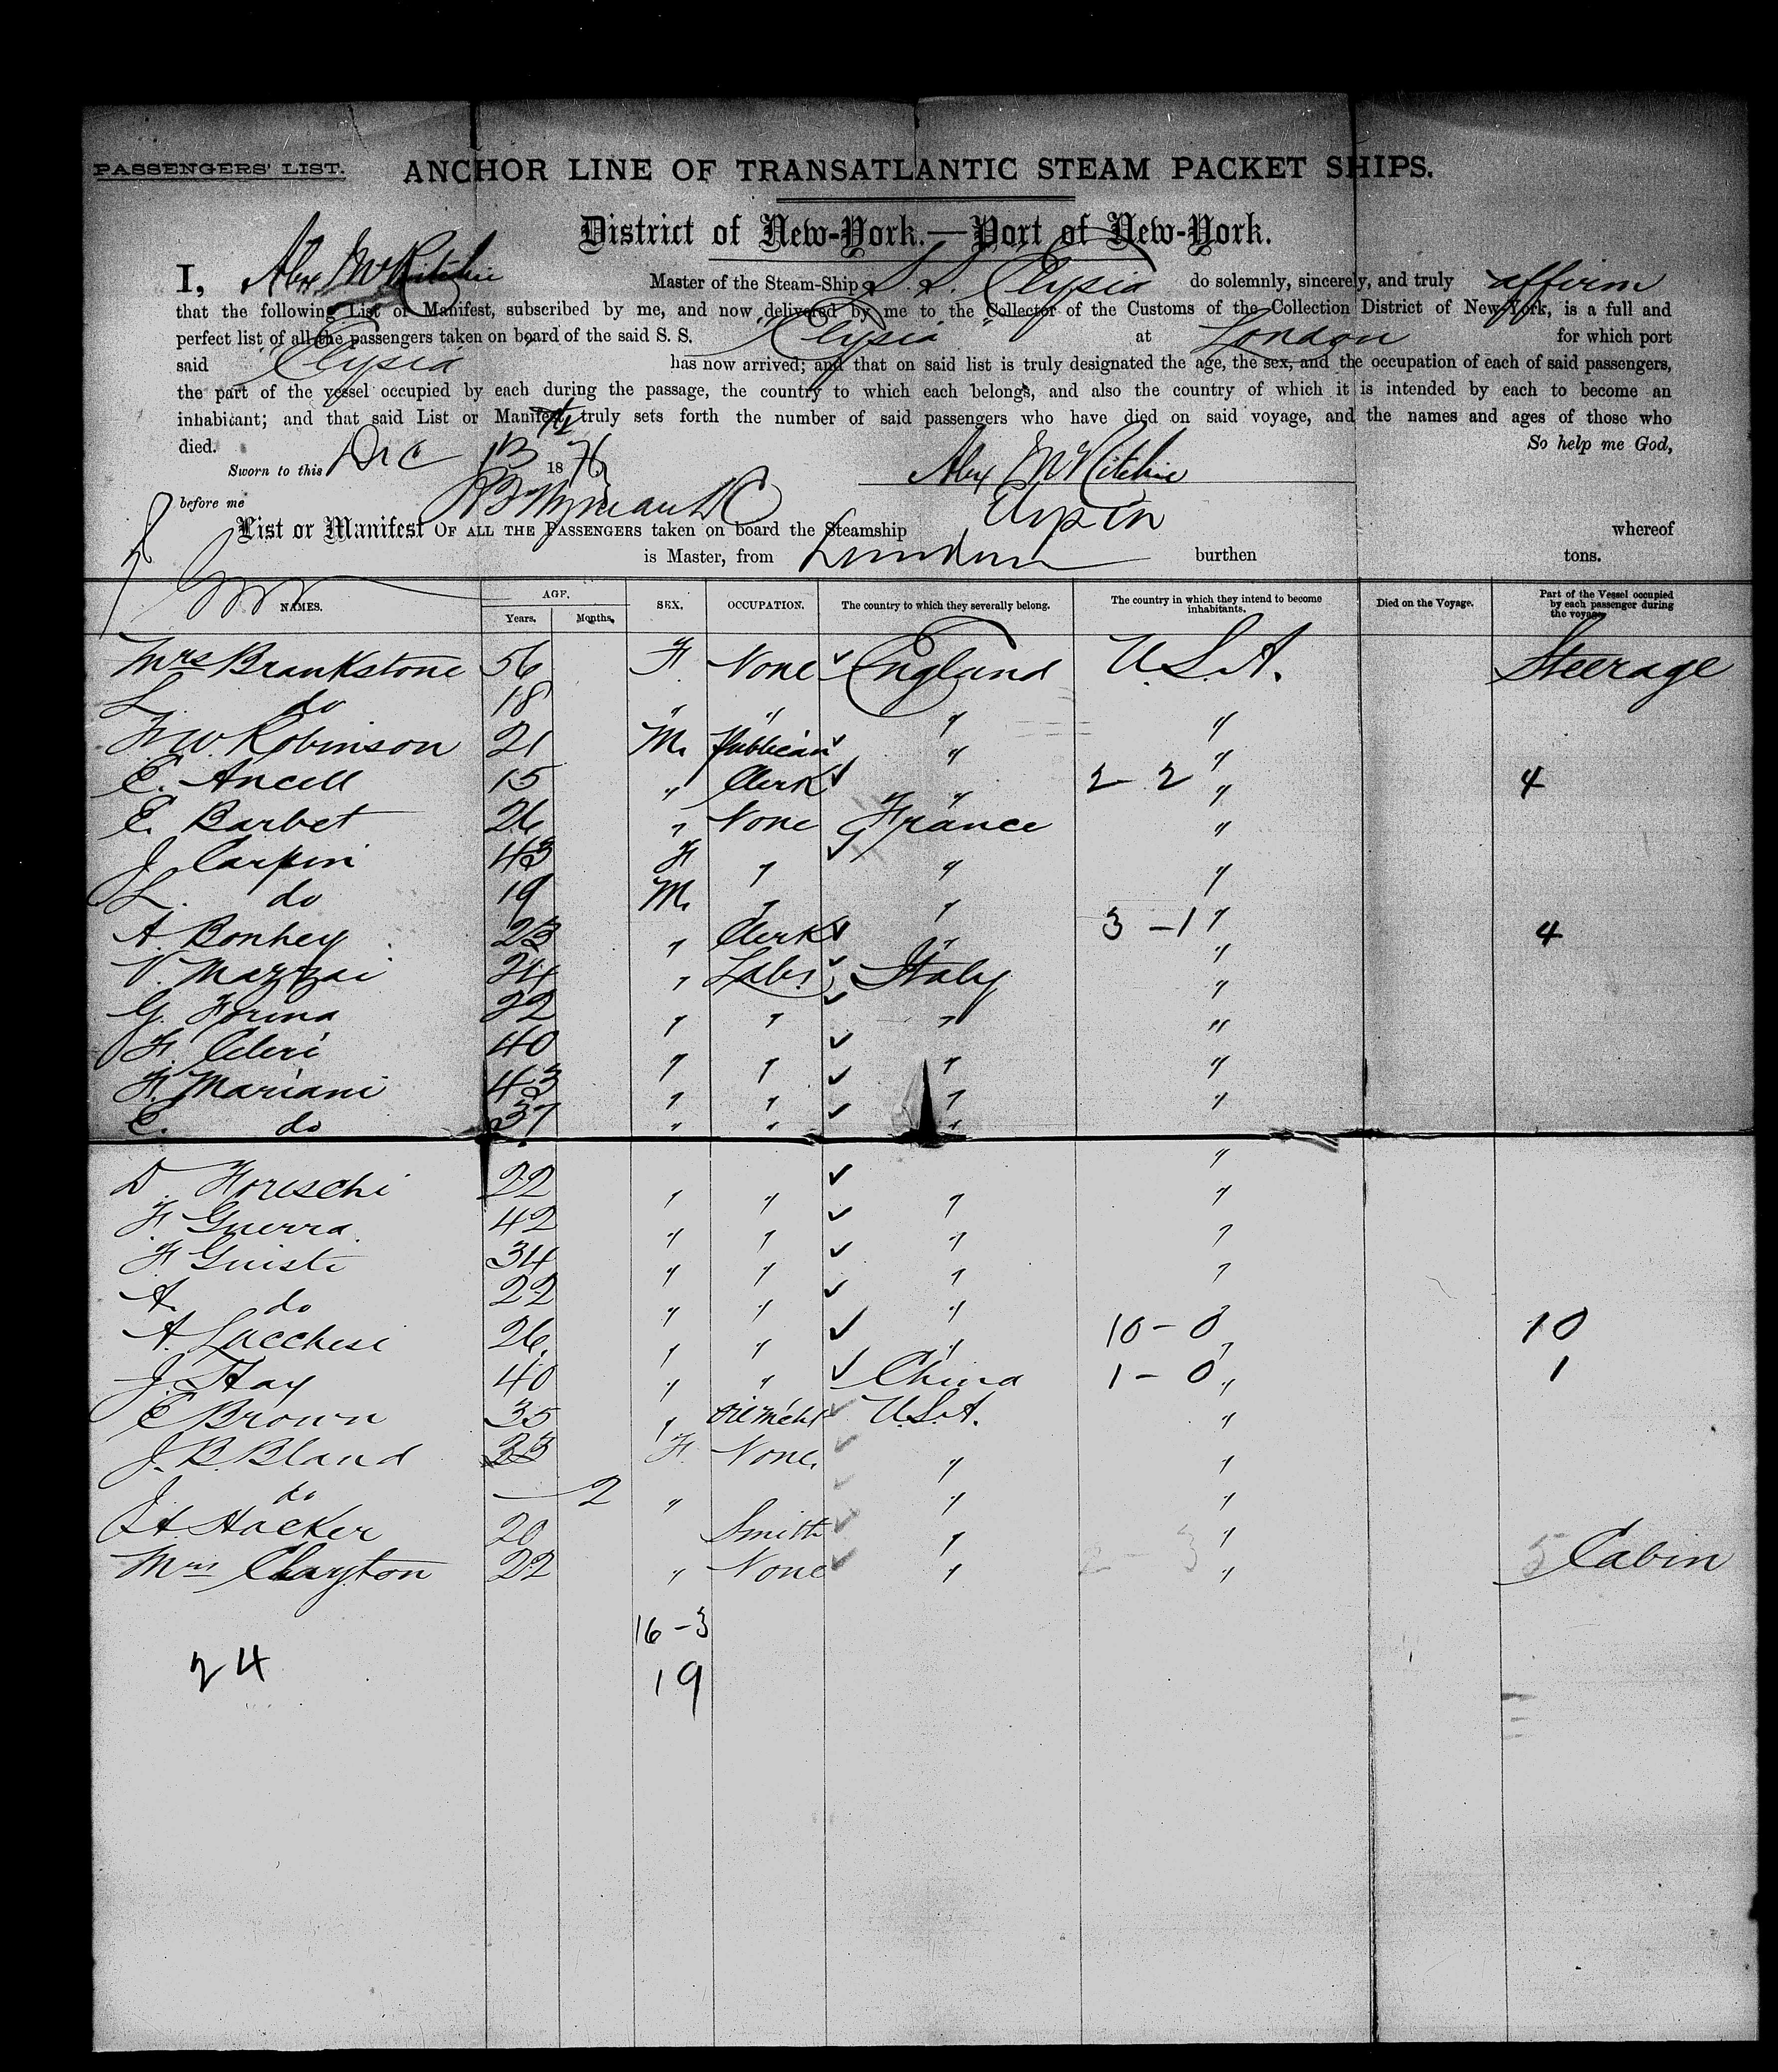 PASSENGERS' LIST. ANCHOR LINE OF TRANSATLANTIC STEAM PACKET SHIPS.
District of New-York.—Port of New-York.
I, Alex McRitchie Master of the Steam-Ship S.S. Elysia do solemnly, sincerely, and truly affirm
that the following List or Manifest, subscribed by me, and now delivered by me to the Collector of the Customs of the Collection District of New-York, is a full and
perfect list of all the passengers taken on board of the said S. S. "Elysia" at London for which port
said "Elysia" has now arrived; and that on said list is truly designated the age, the sex, and the occupation of each of said passengers,
the part of the vessel occupied by each during the passage, the country to which each belongs, and also the country of which it is intended by each to become an
inhabitant; and that said List or Manifest truly sets forth the number of said passengers who have died on said voyage, and the names and ages of those who
died. So help me God,
Sworn to this Dec 13th 1876 Alex McRitchie
before me
List or Manifest OF ALL THE PASSENGERS taken on board the Steamship Elysia whereof
is Master, from London burthen tons.
NAMES. AGE. Years. Months. SEX. OCCUPATION. The country to which they severally belong. The country in which they intend to become inhabitants. Died on the Voyage. Part of the Vessel occupied by each passenger during the voyage
Mrs Brankstone 56 F. None England U.S.A. Steerage
L. do 18 " " " "
F.W. Robinson 21 M. Publican " "
E. Ancell 15 " Clerk " 2-2 " 4
E. Barbet 26 " None France "
J. Carpin 43 F " " "
L. do 19 M. " " "
A. Bonhey 23 " Clerk " 3-1 " 4
V. Mazzai 24 " Labr Italy "
G. Forina 22 " " " "
F. Celeri 40 " " " "
F. Mariani 43 " " " "
C. do 37 " " " "
D. Foreschi 22 " " " "
F. Guerra 42 " " " "
F. Guisti 34 " " " "
A. do 22 " " " "
A. Lucchesi 26 " " " 10-0 " 10
J. Hay 40 " " China 1-0 " 1
C Brown 35 " U.S.A. "
J.B. Bland 33 F. None. " "
J. do — 2 " " "
Hacker 20 Smith " "
Mrs Clayton 22 " None " 2-3 " 5 Cabin
16-3
24 19